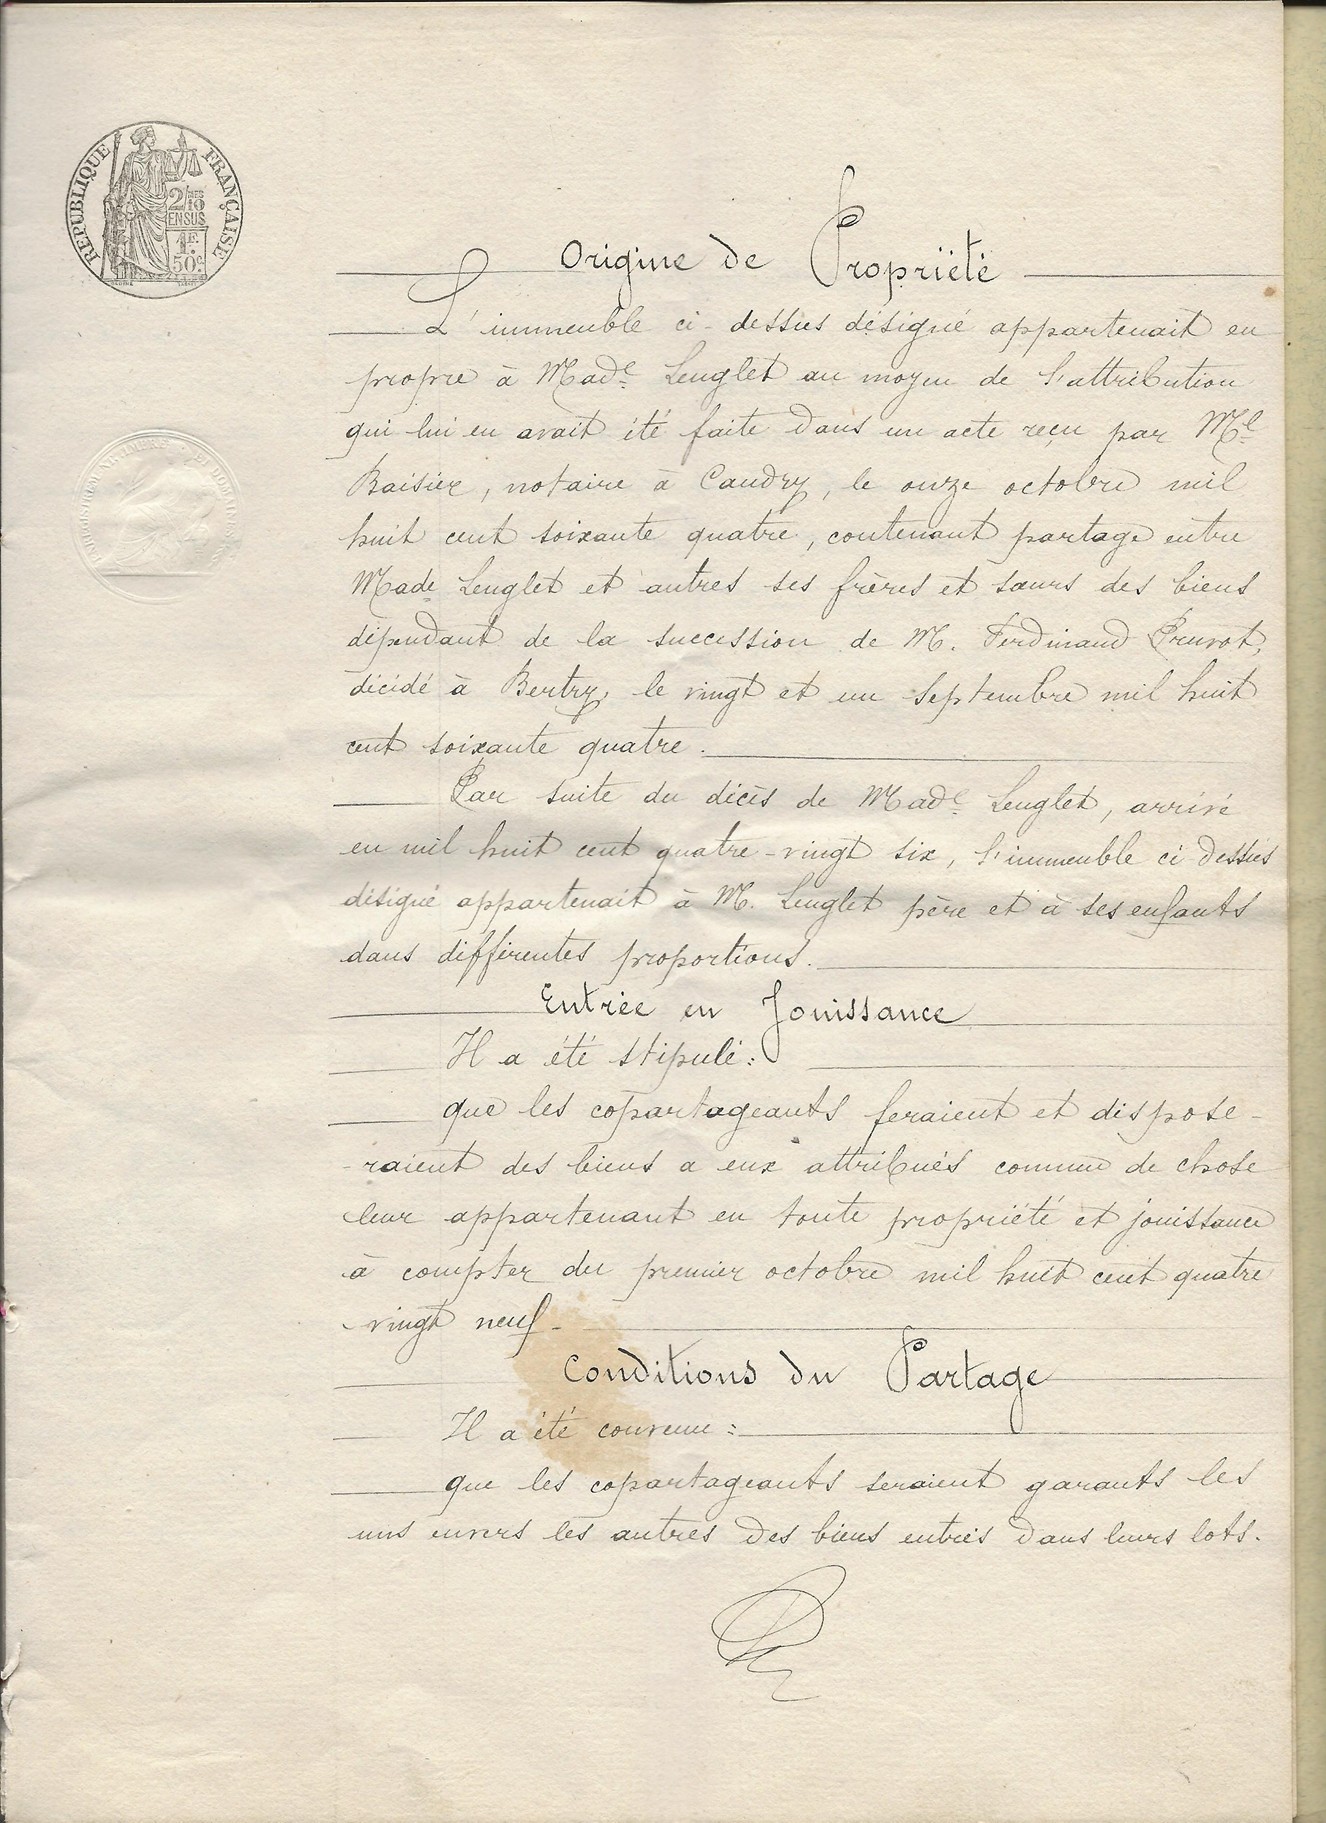 RÉPUBLIQUE FRANÇAISE
2/10 MES
EN SUS
1F.
50c.
Origine de Propriété
L'immeuble ci-dessus désigné appartenait en
propre à Made Lenglet au moyen de l'attribution
qui lui en avait été faite dans un acte reçu par Me
Baisier, notaire à Caudry, le onze octobre mil
huit cent soixante quatre, contenant partage entre
Made Lenglet et autres ses frères et sœurs des biens
dépendant de la succession de M. Ferdinand Pruvot,
décédé à Bertry, le vingt et un septembre mil huit
cent soixante quatre.
Par suite du décès de Made Lenglet, arrivé
en mil huit cent quatre-vingt six, l'immeuble ci dessus
désigné appartenait à M. Lenglet père et à ses enfants
dans différentes proportions.
Entrée en Jouissance
Il a été stipulé:
que les copartageants feraient et dispose-
-raient des biens a eux attribués comme de chose
leur appartenant en toute propriété et jouissance
à compter du premier octobre mil huit cent quatre
vingt neuf-
Conditions du Partage
Il a été convenu:
que les copartageants seraient garants les
uns envers les autres des biens entrés dans leurs lots.